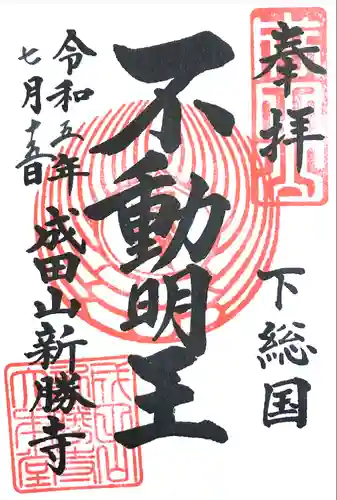 奉拝
下総国
不動明王
令和五年
七月十五日
成田山新勝寺